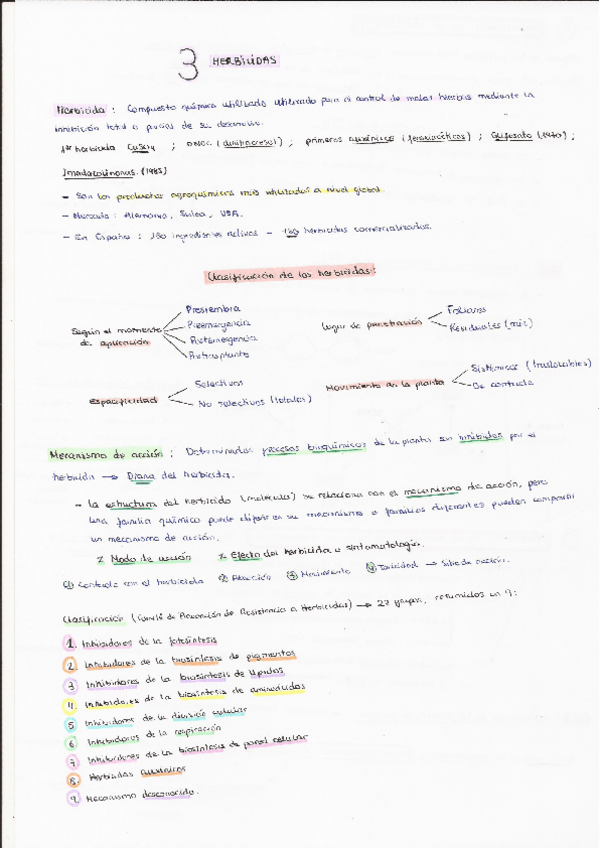 3 HERBICIDAS
Herbicida : Compuesto químico utilizado utilizado para el control de malas hierbas mediante la
inhibición total o parcial de su desarrollo.
1er herbicida CuSO4 ; DNOC (dinitrocresol) ; primeros auxínicos (fenoxiacéticos) ; Glifosato (1970) ;
Imidazolinonas. (1983)
- Son los productos agroquímicos más utilizados a nivel global.
- Mercado : Alemania, Suiza, USA.
- En España : 180 ingredientes activos -  herbicidas comercializados.
Clasificación de los herbicidas:
Según el momento de aplicación
Presiembra
Preemergencia
Postemergencia
Postrasplante
Lugar de penetración
Foliares
Residuales (raíz)
Especificidad
Selectivos
No selectivos (totales)
Movimiento en la planta
Sistémicos (traslocables)
De contacto
Mecanismo de acción : Determinados procesos bioquímicos de la planta son inhibidos por el
herbicida → Diana del herbicida.
- La estructura del herbicida (molécula) se relaciona con el mecanismo de acción, pero
una familia química puede diferir en su mecanismo o familias diferentes pueden compartir
un mecanismo de acción.
≠ Modo de acción ≠ Efecto del herbicida o sintomatología.
① Contacto con el herbicida ② Absorción ③ Movimiento ④ Toxicidad → Sitio de acción.
Clasificación (Comité de Prevención de Resistencia a Herbicidas) → 27 grupos, resumidos en 9:
1. Inhibidores de la fotosíntesis
2. Inhibidores de la biosíntesis de pigmentos
3. Inhibidores de la biosíntesis de lípidos
4. Inhibidores de la biosíntesis de aminoácidos
5. Inhibidores de la división celular
6. Inhibidores de la respiración
7. Inhibidores de la biosíntesis de pared celular
8. Herbicidas auxínicos
9. Mecanismo desconocido.